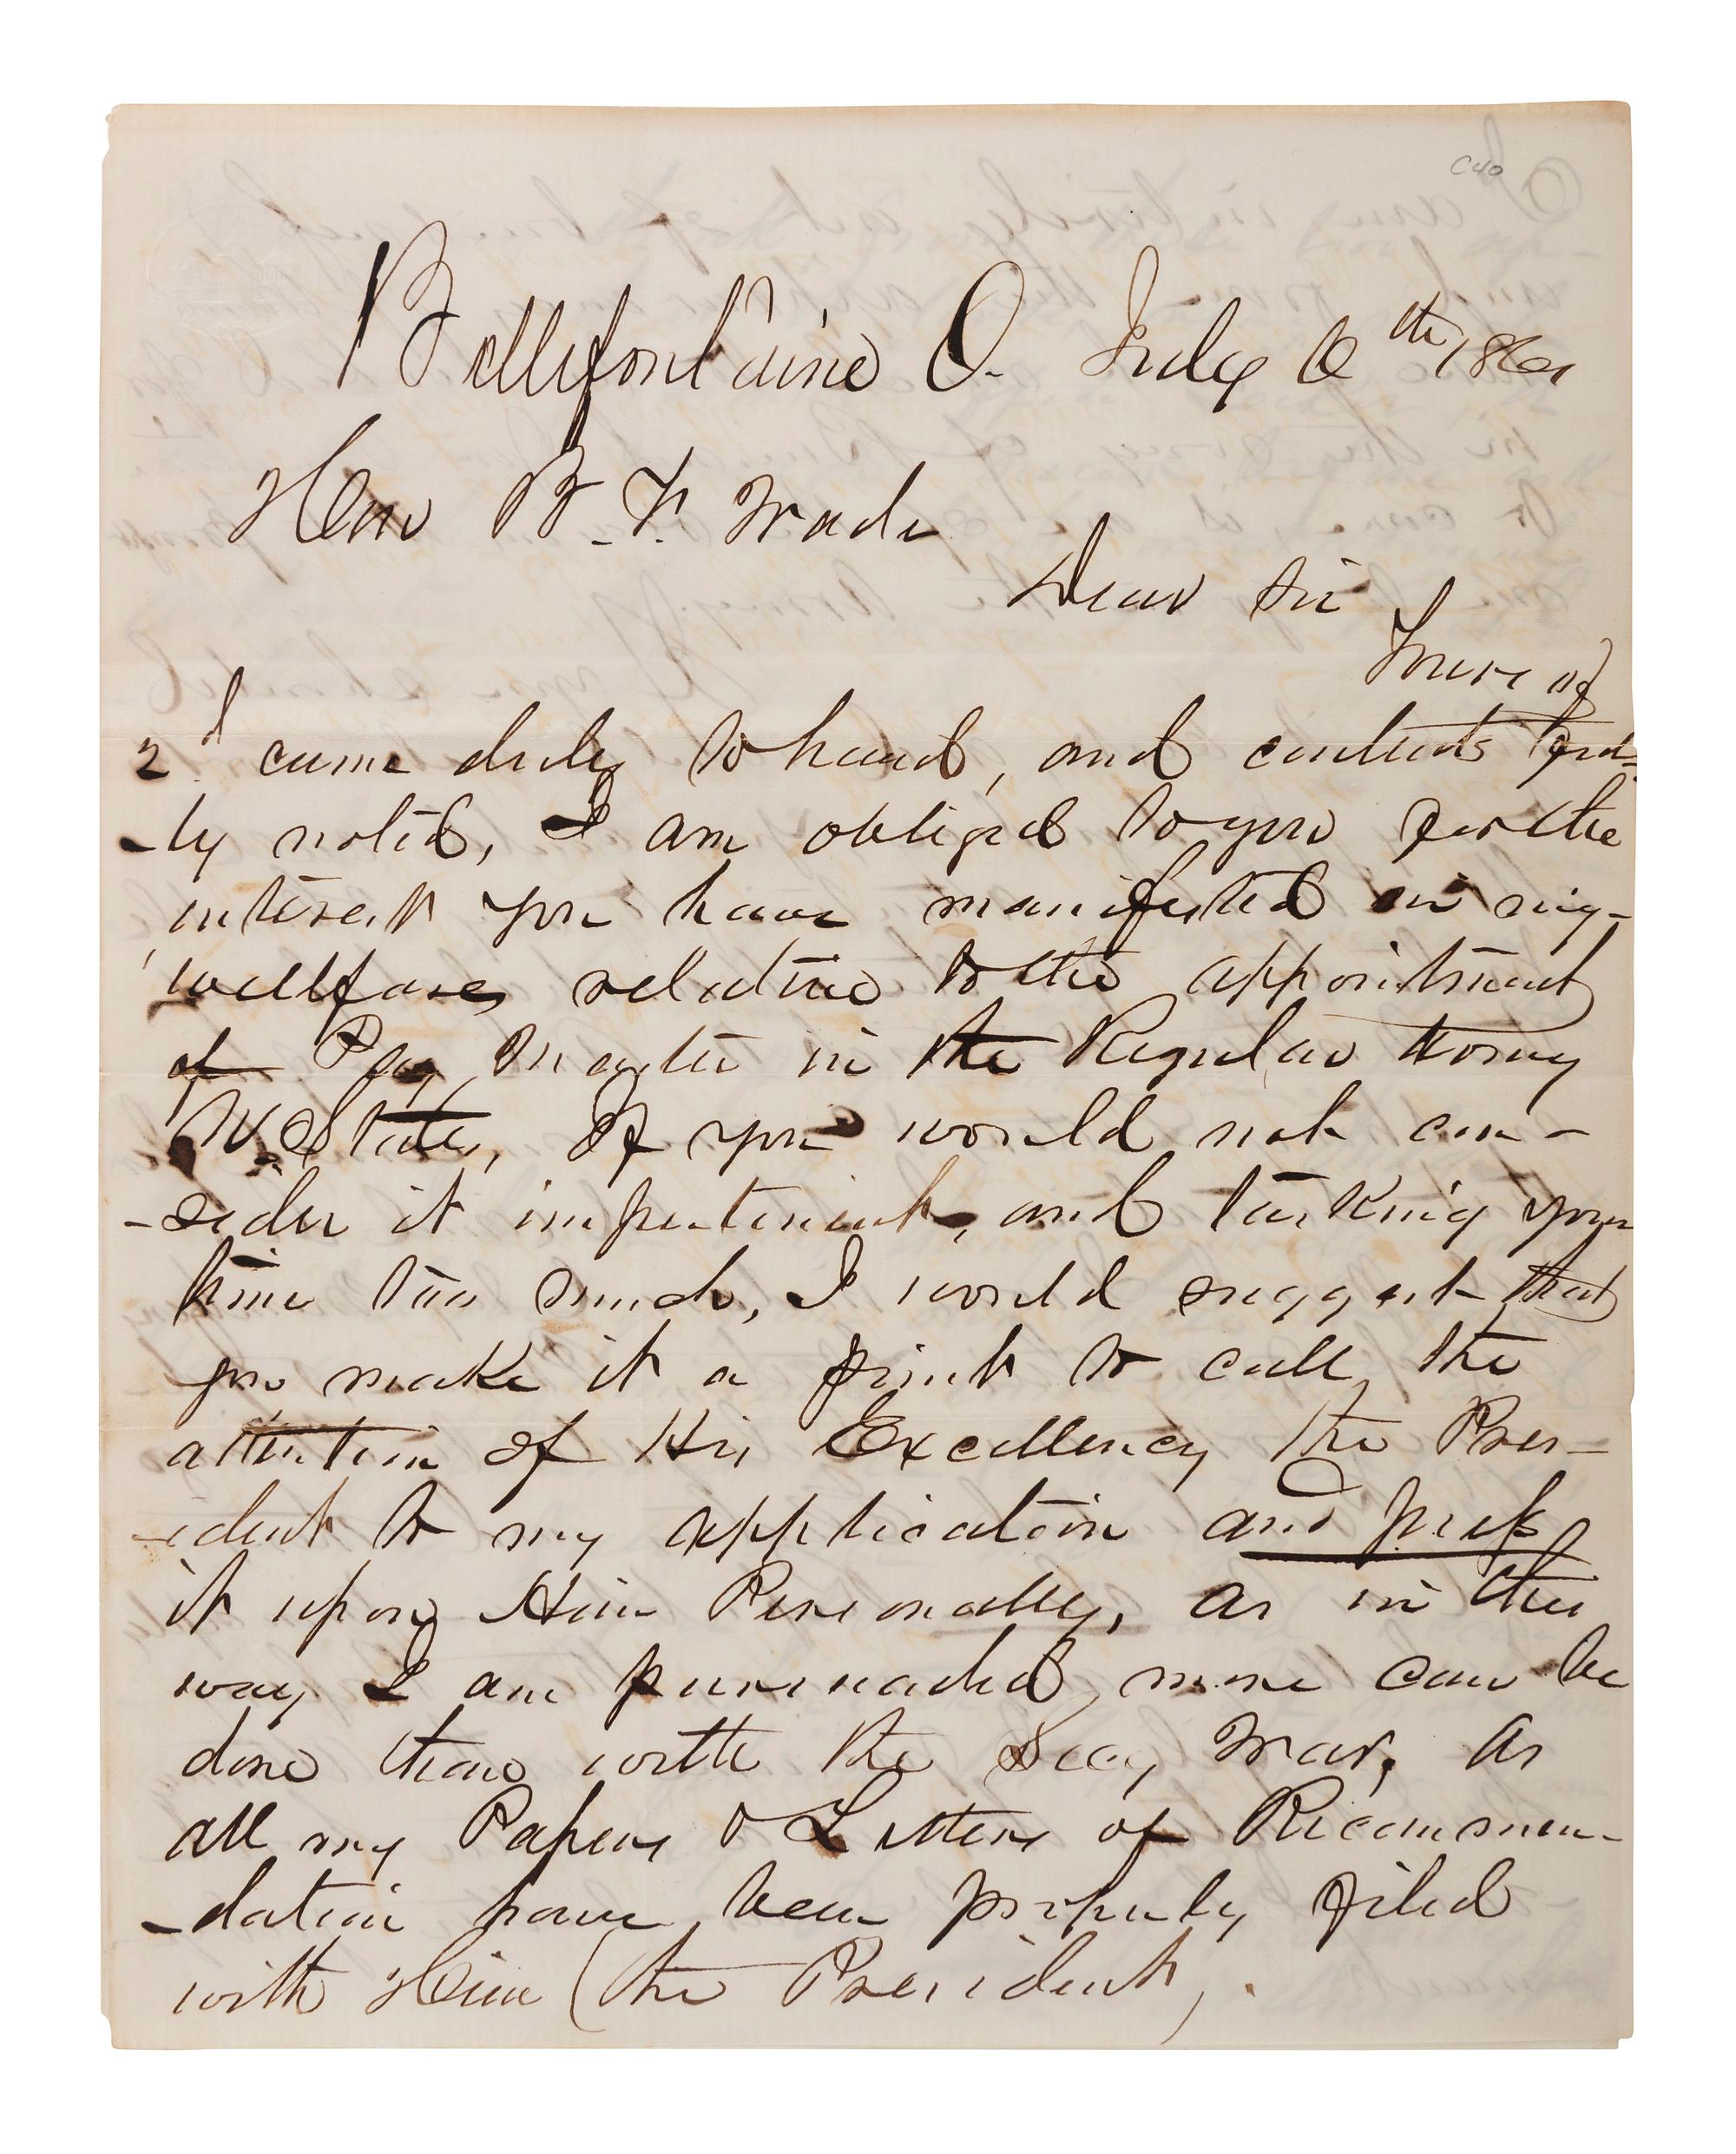 C40
Bellefontaine O. July 6th 1861
Hon B. F. Wade
Dear Sir
Yours of
2d came duly to hand, and contents
-ly noted, I am obliged to you for the
interest you have manifested in my
wellfare, relative to the appointment
of Pay Master in the Regular Army
U States, If you would not con-
-sider it impertinent, and tarking your
time too much, I would suggest that
you make it a point to call the
attention of His Excellency the Pres-
-ident to my application and press
it upon Him Personally, as in this
way I am pursuaded more can be
done than with the Secy War, as
all my Papers & Letters of Recommen-
-dation have been properly filed
with Him (the President).